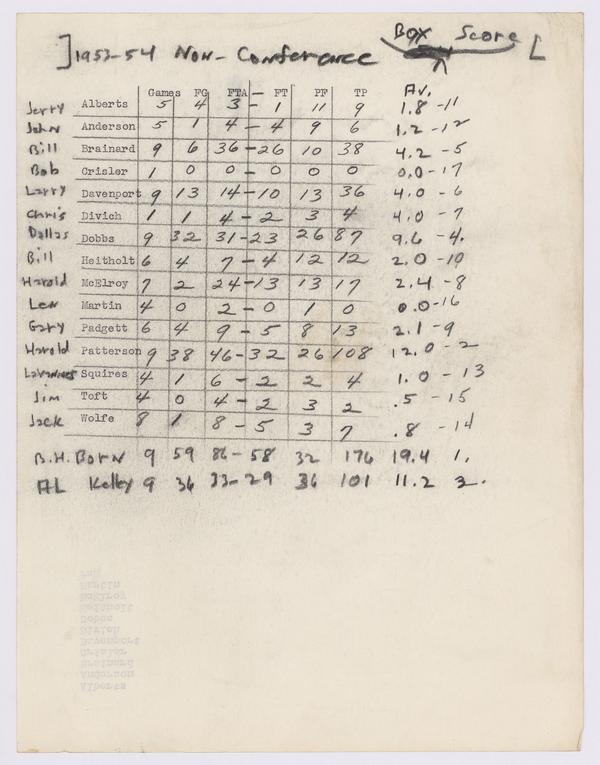 Box Score
]1953-54 Non-Conference [
Games FG FTA - FT PF TP Av.
Jerry Alberts 5 4 3 - 1 11 9 1.8 - 11
John Anderson 5 1 4 - 4 9 6 1.2 - 12
Bill Brainard 9 6 36 - 26 10 38 4.2 - 5
Bob Crisler 1 0 0 - 0 0 0 0.0 - 17
Larry Davenport 9 13 14 - 10 13 36 4.0 - 6
Chris Divich 1 1 4 - 2 3 4 4.0 - 7
Dallas Dobbs 9 32 31 - 23 26 87 9.6 - 4.
Bill Heitholt 6 4 7 - 4 12 12 2.0 - 10
Harold McElroy 7 2 24 - 13 13 17 2.4 - 8
Lew Martin 4 0 2 - 0 1 0 0.0 - 16
Gary Padgett 6 4 9 - 5 8 13 2.1 - 9
Harold Patterson 9 38 46 - 32 26 108 12.0 - 2
Squires 4 1 6 - 2 2 4 1.0 - 13
Jim Toft 4 0 4 - 2 3 2 .5 - 15
Jack Wolfe 8 1 8 - 5 3 7 .8 - 14
B.H. Born 9 59 86 - 58 32 176 19.4 1.
AL Kelley 9 36 33 - 29 36 101 11.2 3.